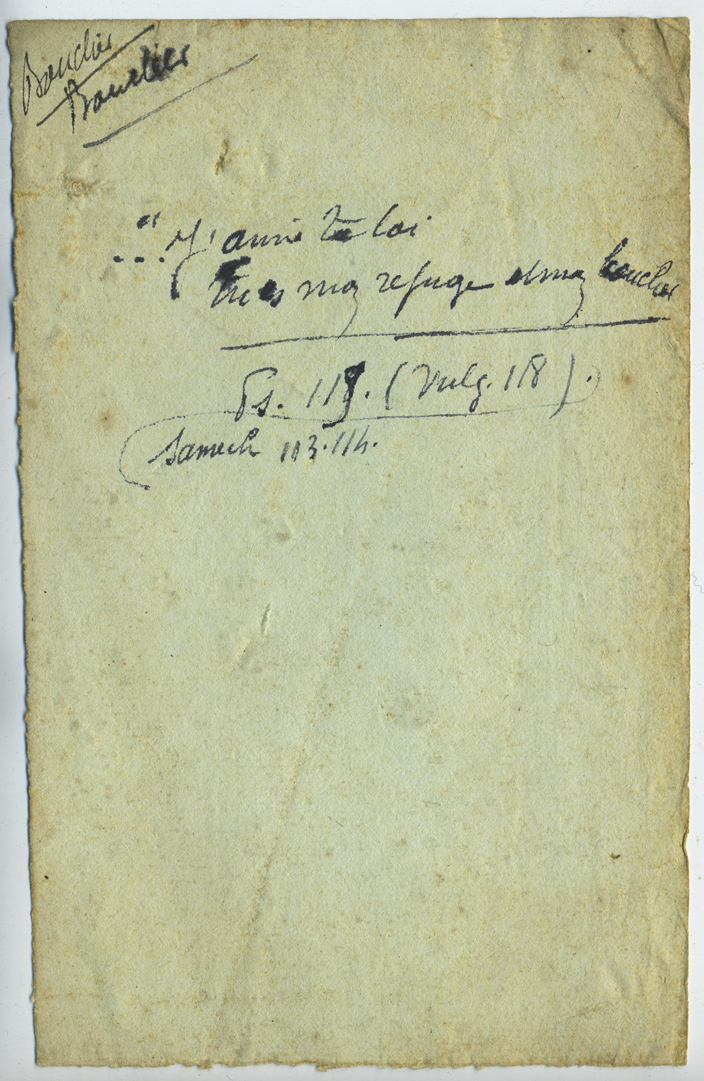 Bouclier
Bouclier
..." J'aime ta loi
Tu es mon refuge et mon bouclier
Ps. 119. (Vulg. 118).
Samech 113.114.